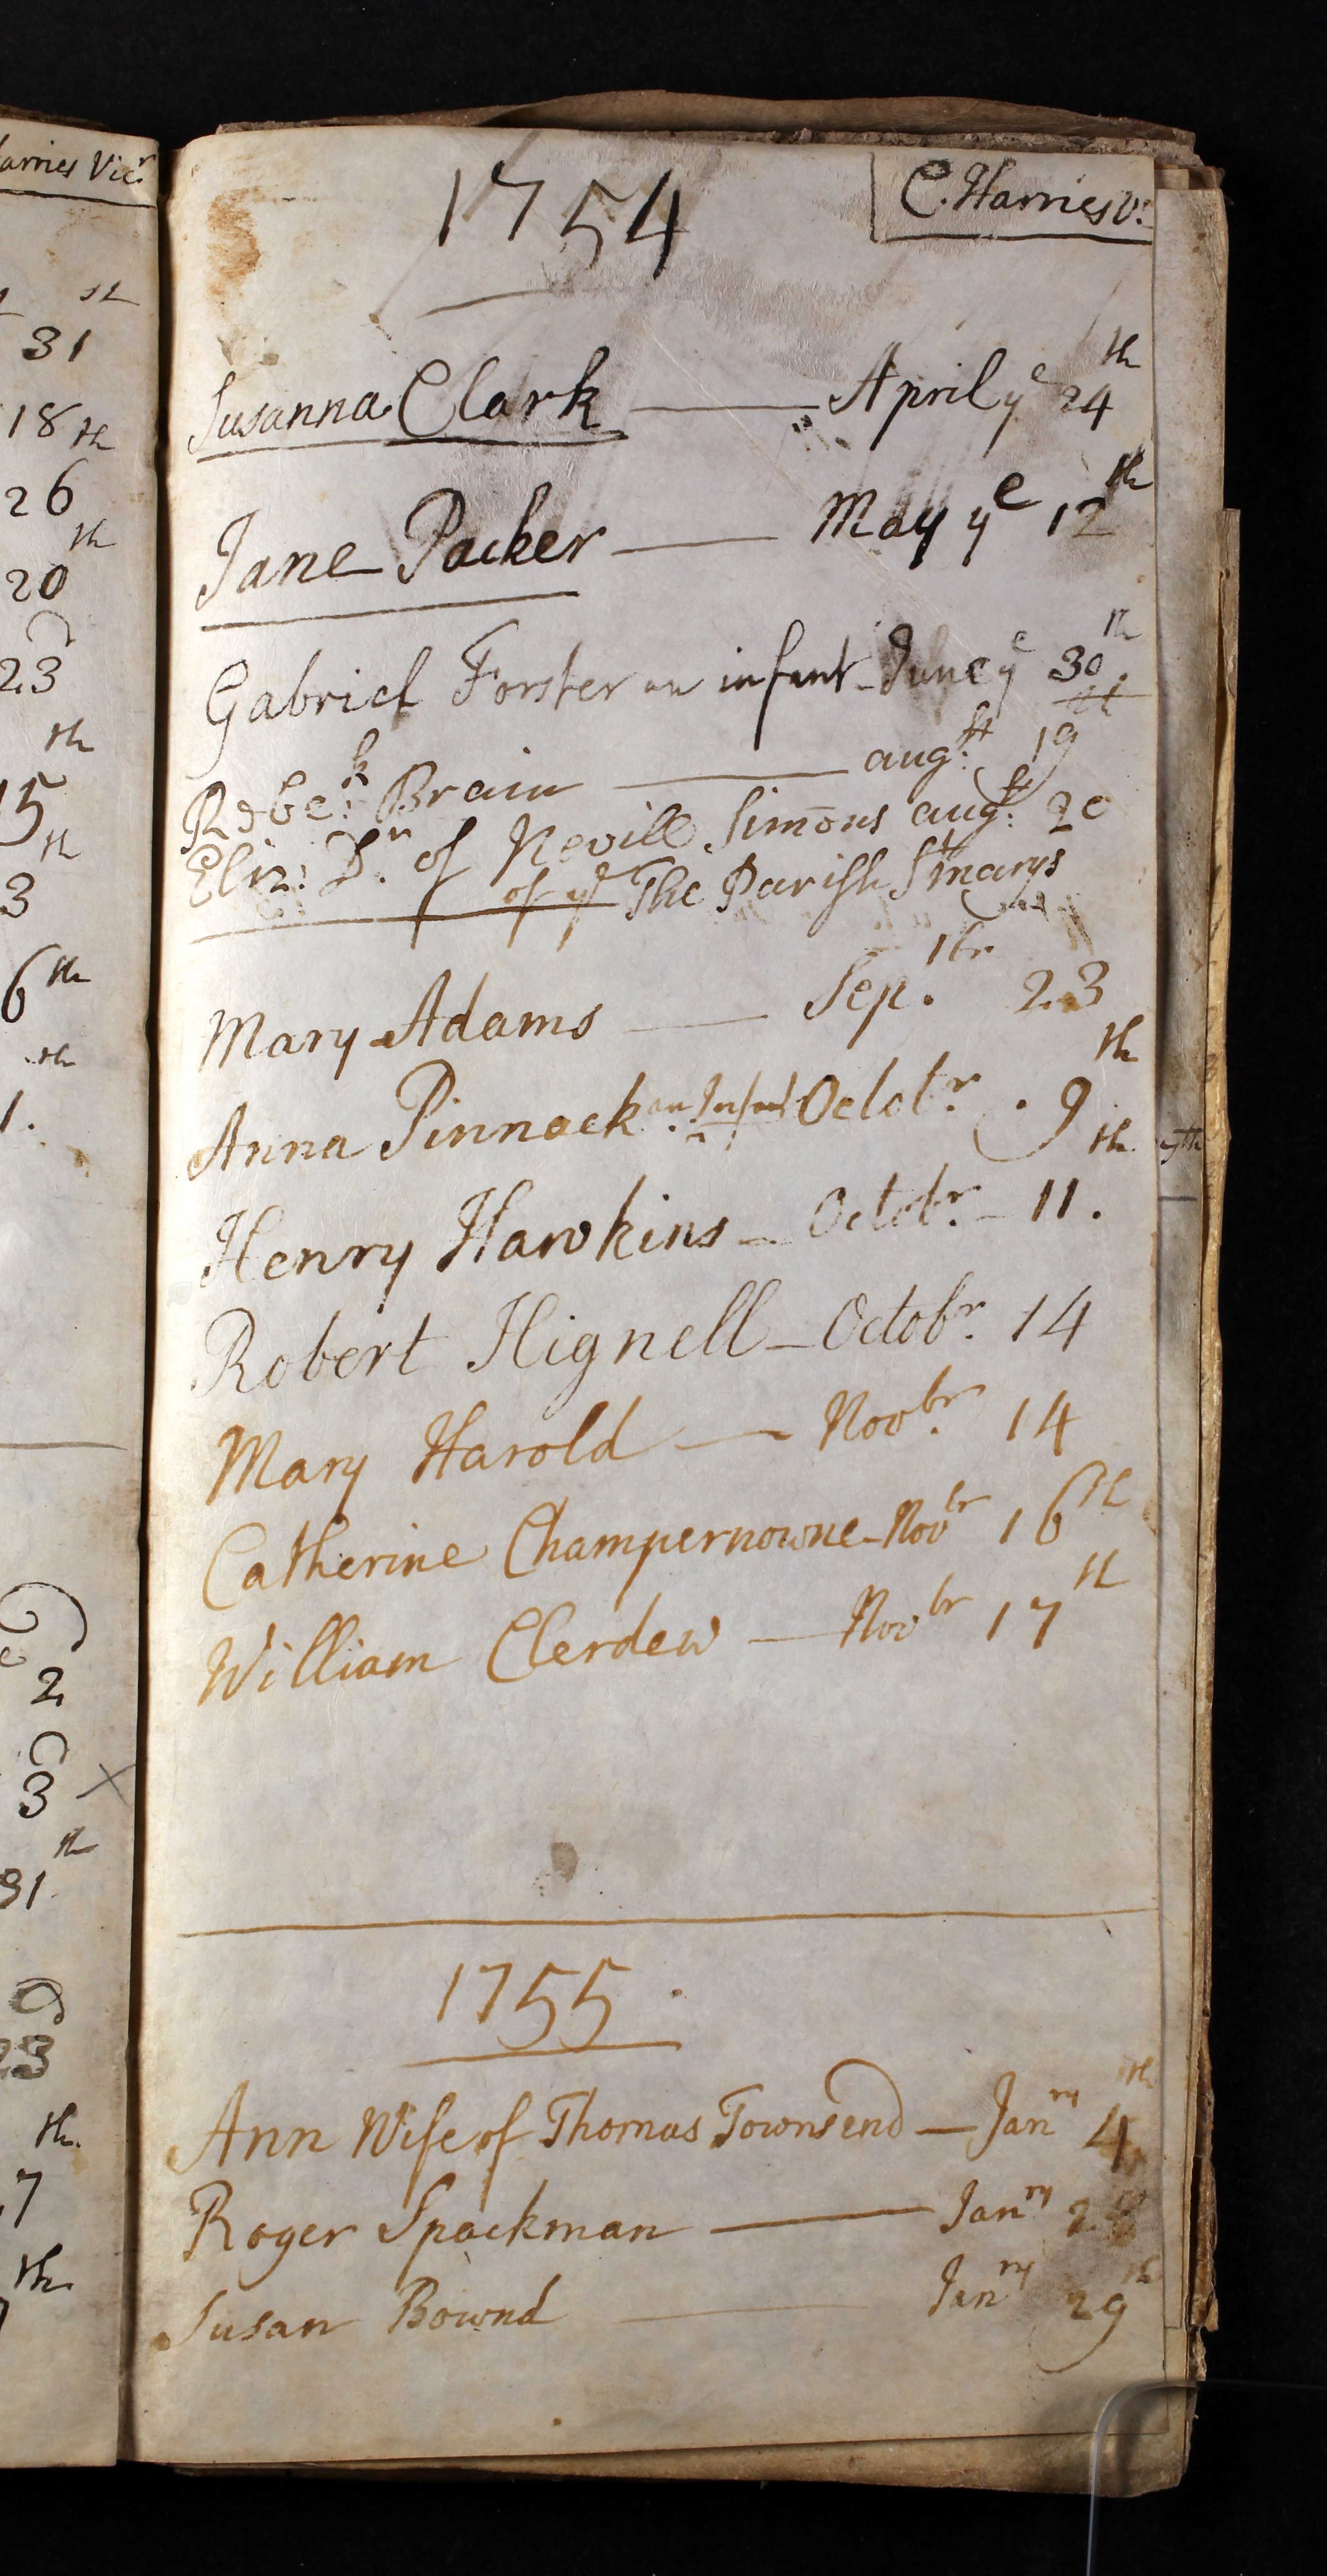 arries Vicr
st
31
18th
26
th
20
23
th
15
th
3
6th
th
1.
2
3
th
31
23
th.
7
th.
1754
C. Harries V:
Susanna Clark April ye 24th
Jane Packer May ye 12th
Gabriel Forster an infant June ye 30th
Brain augst 19
Eliz: Dr. of Nevill Simons augst 20
of ye The Parish St marys
Mary Adams Sep.tbr 23
Anna Pinnock. an Infant Octobr. 9th
Henry Hawkins Octobr. 11th.
Robert Hignell Octobr. 14
Mary Harold Novbr. 14
Catherine Champernowne Novbr 16th
William Clerdew Novbr 17th
1755.
Ann Wife of Thomas Townsend Janry 4th
Roger Spackman Janry
Susan Bownd Janry 29th